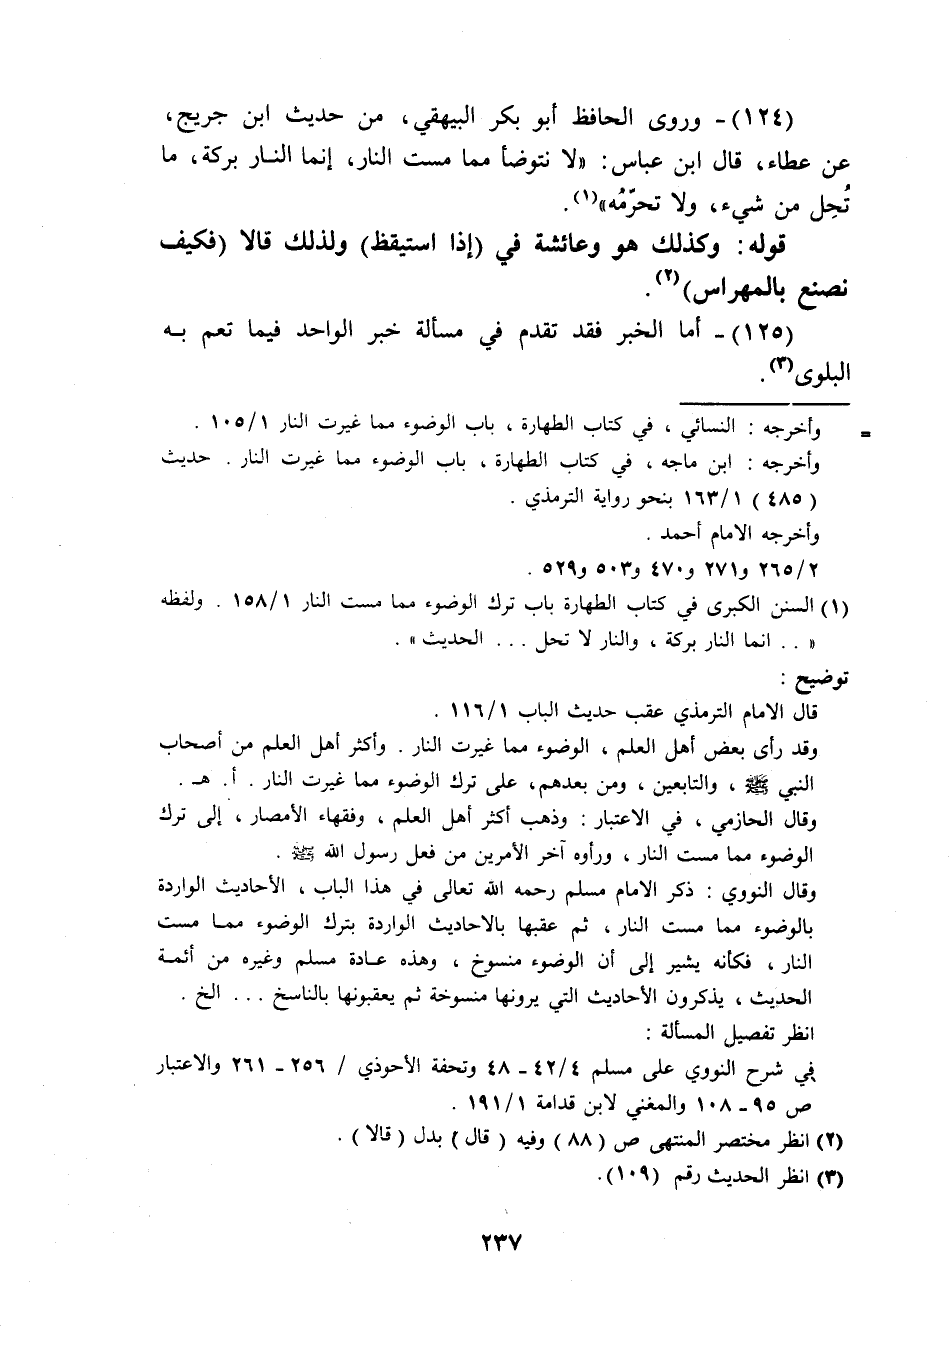 (١٢٤) - وروى الحافظ أبو بكر البيهقي، من حديث ابن جريج،
عن عطاء، قال ابن عباس: «لا نتوضأ مما مست النار، إنما النار بركة، ما
تُحِل من شيء، ولا تحرّمُه»(١).
قوله: وكذلك هو وعائشة في (إذا استيقظ) ولذلك قالا (فكيف
نصنع بالمهراس)(٢).
(١٢٥) - أما الخبر فقد تقدم في مسألة خبر الواحد فيما تعم به
البلوى(٣).
= وأخرجه : النسائي ، في كتاب الطهارة ، باب الوضوء مما غيرت النار ١٠٥/١ .
وأخرجه : ابن ماجه ، في كتاب الطهارة ، باب الوضوء مما غيرت النار . حديث
( ٤٨٥ ) ١٦٣/١ بنحو رواية الترمذي .
وأخرجه الامام أحمد .
٢٦٥/٢ و٢٧١ و٤٧٠ و٥٠٣ و٥٢٩ .
(١) السنن الكبرى في كتاب الطهارة باب ترك الوضوء مما مست النار ١٥٨/١ . ولفظه
« .. انما النار بركة ، والنار لا تحل ... الحديث » .
توضيح :
قال الامام الترمذي عقب حديث الباب ١١٦/١ .
وقد رأى بعض أهل العلم ، الوضوء مما غيرت النار . وأكثر أهل العلم من أصحاب
النبي ﷺ ، والتابعين ، ومن بعدهم، على ترك الوضوء مما غيرت النار . أ. هـ .
وقال الحازمي ، في الاعتبار : وذهب أكثر أهل العلم ، وفقهاء الأمصار ، إلى ترك
الوضوء مما مست النار ، ورأوه آخر الأمرين من فعل رسول الله ﷺ .
وقال النووي : ذكر الامام مسلم رحمه الله تعالى في هذا الباب ، الأحاديث الواردة
بالوضوء مما مست النار ، ثم عقبها بالاحاديث الواردة بترك الوضوء مما مست
النار ، فكأنه يشير إلى أن الوضوء منسوخ ، وهذه عادة مسلم وغيره من أئمة
الحديث ، يذكرون الأحاديث التي يرونها منسوخة ثم يعقبونها بالناسخ ... الخ .
انظر تفصيل المسألة :
في شرح النووي على مسلم ٤٢/٤ ـ ٤٨ وتحفة الأحوذي / ٢٥٦ ـ ٢٦١ والاعتبار
ص ٩٥ ـ ١٠٨ والمغني لابن قدامة ١٩١/١ .
(٢) انظر مختصر المنتهى ص ( ٨٨ ) وفيه ( قال ) بدل ( قالا ) .
(٣) انظر الحديث رقم (١٠٩).
٢٣٧